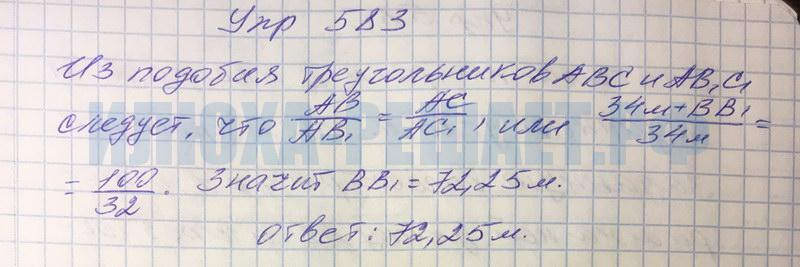 Упр 583
Из подобия треугольников ABC и AB₁C₁
следует, что AB/AB₁ = AC/AC₁, или 34м+BB₁/34м =
= 100/32. Значит BB₁ = 72,25м.
ответ: 72,25м.
КЛЮХАРЕШАЕТ.РФ